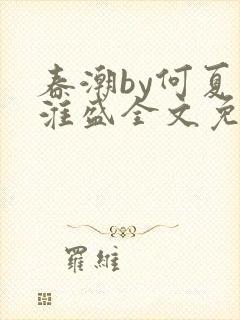 春潮by何夏
淮盛全文免
羅維